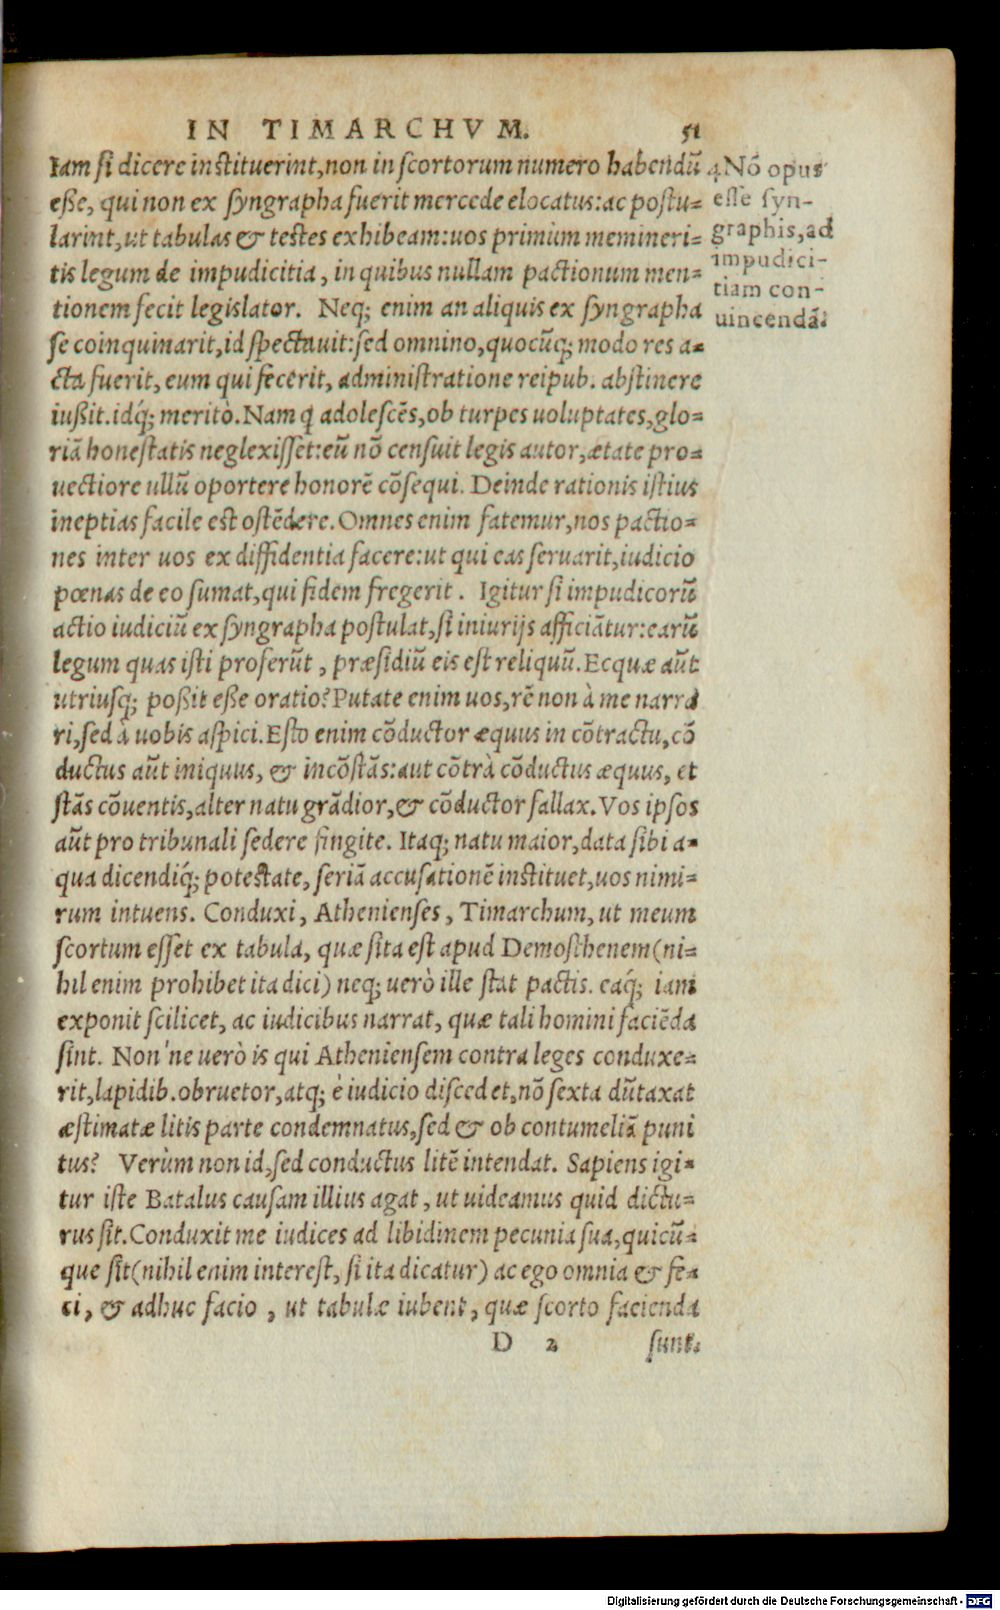 IN TIMARCHVM. 51
Iam si dicere instituerint, non in scortorum numero habendū
eße, qui non ex syngrapha fuerit mercede elocatus: ac postu-
larint, ut tabulas & testes exhibeam: uos primùm memineri-
tis legum de impudicitia, in quibus nullam pactionum men-
tionem fecit legislator. Neq; enim an aliquis ex syngrapha
se coinquinarit, id spectauit: sed omnino, quocūq; modo res a-
cta fuerit, eum qui fecerit, administratione reipub. abstinere
iußit. idq́; meritò. Nam q adolescēs, ob turpes uoluptates, glo-
riā honestatis neglexisset: eū nō censuit legis autor, ætate pro-
uectiore ullū oportere honorē cōsequi. Deinde rationis istius
ineptias facile est ostēdere. Omnes enim fatemur, nos pactio-
nes inter uos ex diffidentia facere: ut qui eas seruarit, iudicio
pœnas de eo sumat, qui fidem fregerit. Igitur si impudicorū
actio iudiciū ex syngrapha postulat, si iniurijs afficiātur: earū
legum quas isti proferūt, præsidiū eis est reliquū. Ecquæ aūt
utriusq; poßit eße oratio? Putate enim uos, rē non à me narra
ri, sed à uobis aspici. Esto enim cōductor æquus in cōtractu, cō
ductus aūt iniquus, & incōstās: aut cōtrà cōductus æquus, et
stās cōuentis, alter natu grādior, & cōductor fallax. Vos ipsos
aūt pro tribunali sedere fingite. Itaq; natu maior, data sibi a-
qua dicendiq́; potestate, seriā accusationē instituet, uos nimi-
rum intuens. Conduxi, Athenienses, Timarchum, ut meum
scortum esset ex tabula, quæ sita est apud Demosthenem (ni-
hil enim prohibet ita dici) neq; uerò ille stat pactis. eaq́; iam
exponit scilicet, ac iudicibus narrat, quæ tali homini faciēda
sint. Non'ne uerò is qui Atheniensem contra leges conduxe-
rit, lapidib. obruetor, atq; è iudicio discedet, nō sexta dūtaxat
æstimatæ litis parte condemnatus, sed & ob contumeliā puni
tus? Verùm non id, sed conductus litē intendat. Sapiens igi-
tur iste Batalus causam illius agat, ut uideamus quid dictu-
rus sit. Conduxit me iudices ad libidinem pecunia sua, quicū-
que sit (nihil enim interest, si ita dicatur) ac ego omnia & fe-
ci, & adhuc facio, ut tabulæ iubent, quæ scorto facienda
D 2 sunt.
4. Nō opus
esse syn-
graphis, ad
impudici-
tiam con-
uincendā.
Digitalisierung gefördert durch die Deutsche Forschungsgemeinschaft - DFG